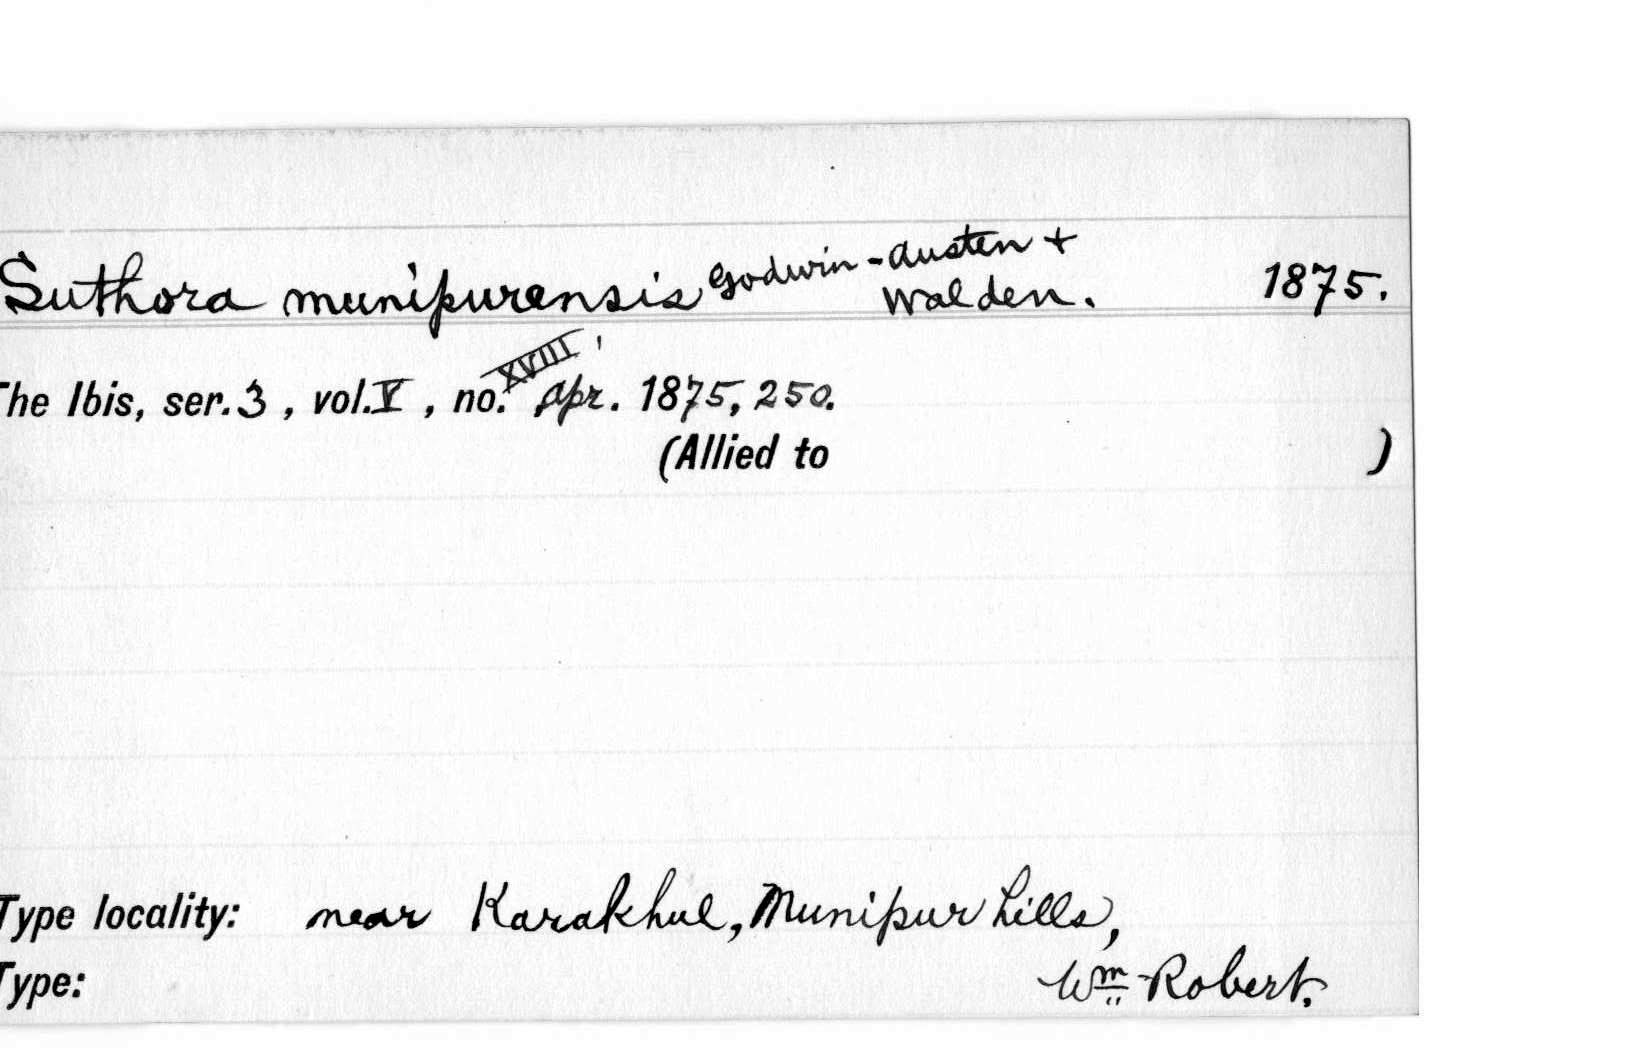 Suthora munipurensis Godwin-Austen + Walden. 1875.
The Ibis, ser. 3, vol. V, no. XVIII, Apr. 1875, 250.
(Allied to )
Type locality: near Karakhul, Munipur hills,
Type: Wm Robert.